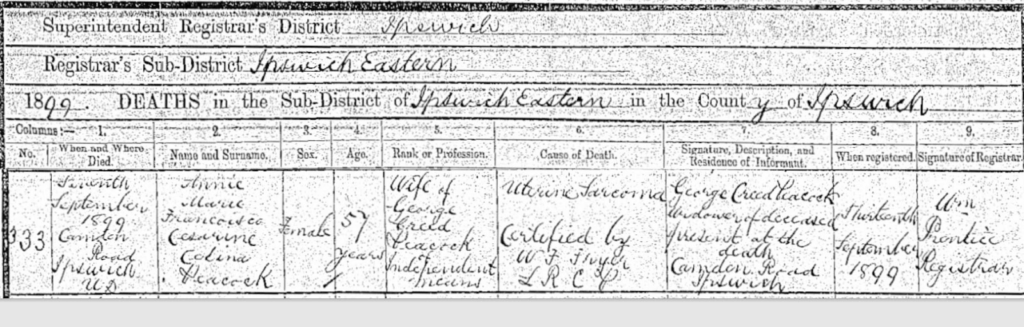 Superintendent Registrar's District Ipswich
Registrar's Sub-District Ipswich Eastern
1899. DEATHS in the Sub-District of Ipswich Eastern in the County of Ipswich
Columns:— 1. 2. 3. 4. 5. 6. 7. 8. 9.
No. When and Where Died. Name and Surname. Sex. Age. Rank or Profession. Cause of Death. Signature, Description, and Residence of Informant. When registered. Signature of Registrar
333
Seventh
September
1899
Camden
Road
Ipswich
U D
Annie
Marie
Francoise
Cesarine
Celina
Peacock
Female
57
years
Wife of
George
Creed
Peacock
Independent
means
Uterine Sarcoma
Certified by
W F
L R C P
George Creed Peacock
Widower of deceased
present at the
death
Camden Road
Ipswich
Thirteenth
September
1899
Wm
Prentice
Registrar